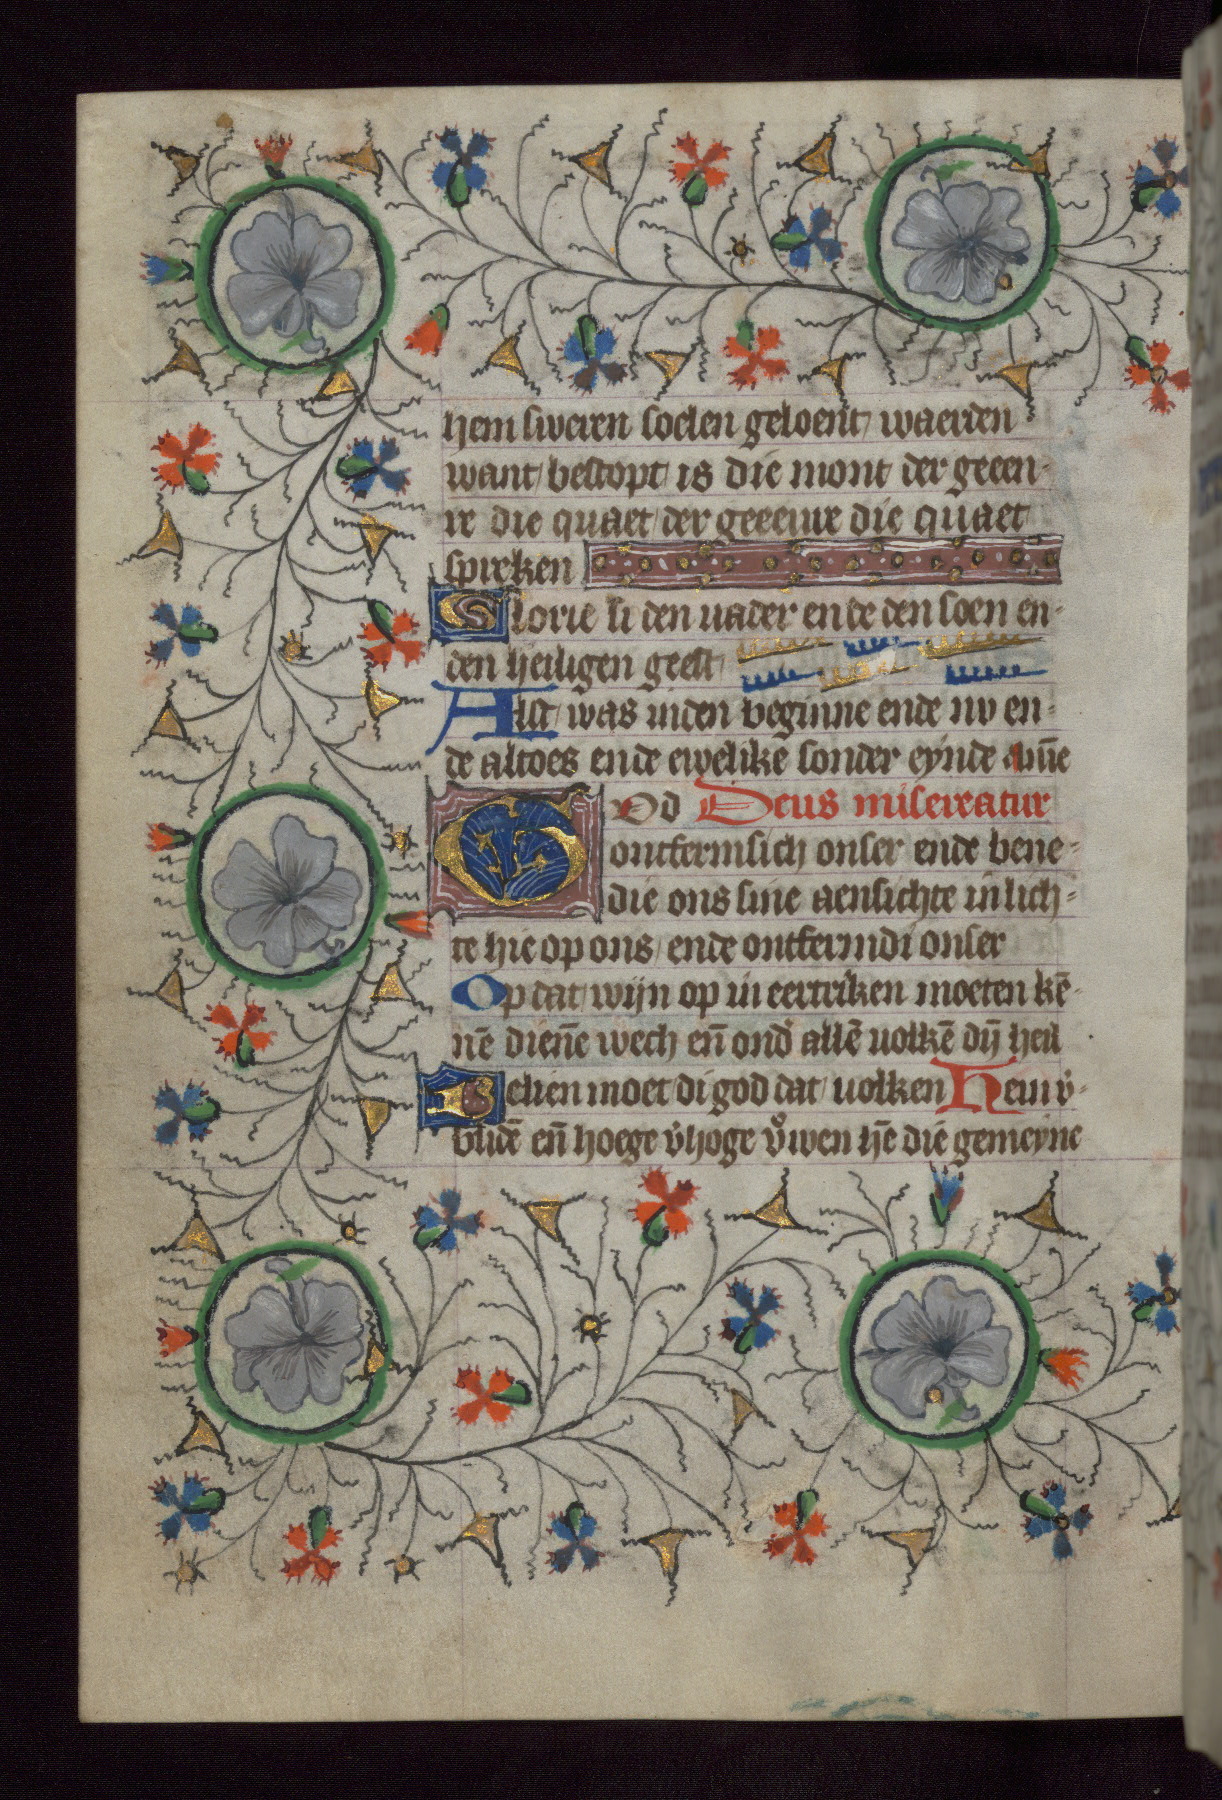 hem sweren soelen geloent waerden
want bestopt is die mont der geen-
re die quaet der geeenre die quaet
spreken
Glorie si den uader ende den soen en-
den heiligen geest
Alst was inden beginne ende nv en-
de altoes ende ewelike sonder eynde am̄e
God Deus misereatur
ontfermsich onser ende bene-
die ons sine aensichte in lich-
te hie op ons ende ontfermdi onser
Op dat wijn op in eertriken moeten kē-
nē dienē wech en̄ ond allē uolkē dij heil
Belien moet di god dat uolken Hem v-
blidē en̄ hoege vhoge vwen hē die gemeyne